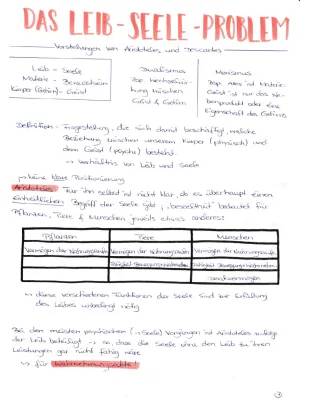 DAS LEIB-SEELE-PROBLEM
Vorstellungen von Aristoteles und Descartes
Leib - Seele
Materie - Bewusstsein
Körper (Gehirn) - Geist
Dualismus
zwischen
Geist & Gehirn
Monismus
alles ist Materie
Geist ist nur das Ne-
benprodukt oder eine
Eigenschaft des Gehirns
Definition - Fragestellung, die sich damit beschäftigt, welche
Beziehung zwischen unserem Körper (physisch) und
dem Geist (psyche) besteht.
→ Verhältnis von Leib und Seele
→ keine klare Positionierung
Aristoteles: Für ihn selbst ist nicht klar, ob es überhaupt einen
einheitlichen Begriff der Seele gibt, "beseelt" bedeutet für
Pflanzen, Tiere & Menschen jeweils etwas anderes:
Pflanzen Tiere Menschen
Vermögen der Nahrungsaufn. Vermögen der Nahrungsaufn. Vermögen der Nahrungsaufn.
Denkvermögen
→ diese verschiedenen Funktionen der Seele sind zur Erfüllung
des Leibes unbedingt nötig
Bei den meisten psychischen (→ Seele) Vorgängen ist Aristoteles zufolge
der Leib beteiligt → so, dass die Seele ohne den Leib zu ihren
Leistungen gar nicht fähig wäre
→ für Wahrnehmungsakte!